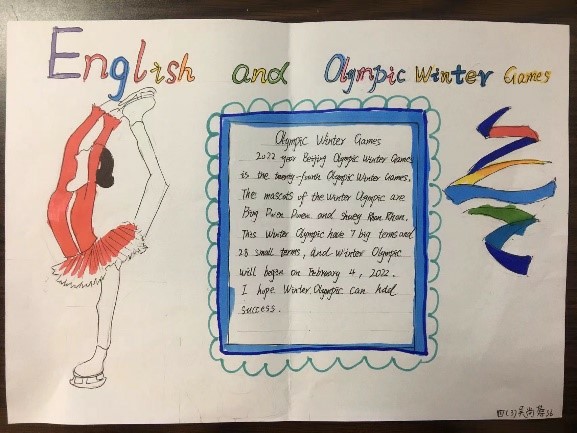 English and Olympic Winter Games
Olympic Winter Games
2022 year Beijing Olympic Winter Games
is the twenty-fourth Olympic Winter Games.
The mascots of the Winter Olympic are
Bing Dwen Dwen and Shuey Rhon Rhon.
This Winter Olympic have 7 big terms and
28 small terms, and Winter Olympic
will began on February 4, 2022.
I hope Winter Olympic can hdd
success.
四(3)吴尚蓉 56